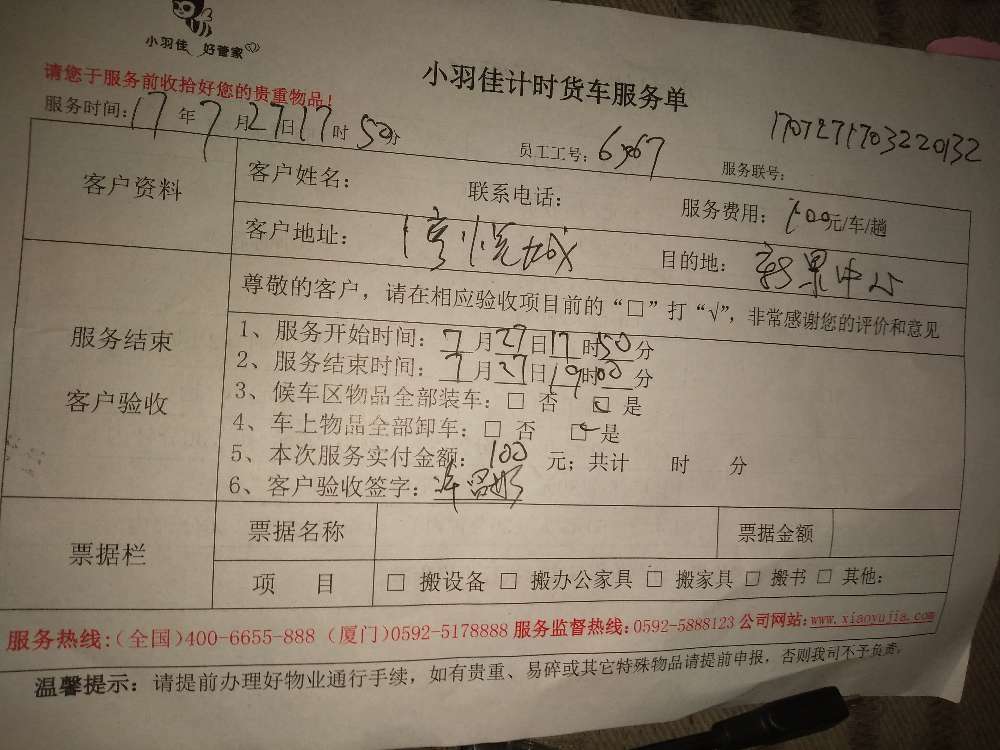 小羽佳 好管家
小羽佳计时货车服务单
请您于服务前收拾好您的贵重物品！
服务时间：17年7月27日17时50分 员工工号： 服务联号：1707271703220132
客户资料 客户姓名： 联系电话： 服务费用：100元/车/趟
客户地址： 目的地：
服务结束
客户验收
尊敬的客户，请在相应验收项目前的“□”打“√”，非常感谢您的评价和意见
1、服务开始时间：7月27日17时50分
2、服务结束时间：7月27日19时00分
3、候车区物品全部装车：□ 否 □ 是
4、车上物品全部卸车：□ 否 □ 是
5、本次服务实付金额：100 元；共计 时 分
6、客户验收签字：
票据栏 票据名称 票据金额
项 目 □ 搬设备 □ 搬办公家具 □ 搬家具 □ 搬书 □ 其他：
服务热线：(全国)400-6655-888 (厦门)0592-5178888 服务监督热线：0592-5888123 公司网站：www.xiaoyujia.com
温馨提示：请提前办理好物业通行手续，如有贵重、易碎或其它特殊物品请提前申报，否则我司不予负责。